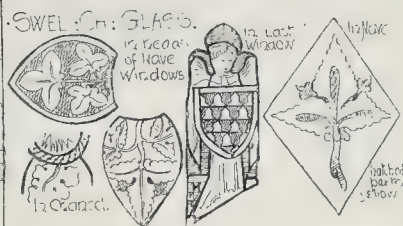 SWEL : CH : GLASS.
in heads
of Nave
Windows
in East
Window
In Nave
In Chancel.
hatched
parts
yellow